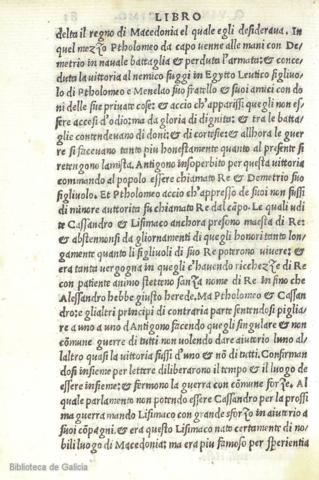 LIBRO
delta il regno di Macedonia el quale egli desiderava. In
quel mezzo Ptholomeo da capo venne alle mani con De
metrio in navale battaglia & perduta l'armata: & conce
duta la vittoria al nemico fuggi in Egytto Leutico figliuo
lo di Ptholomeo e Menelao suo fratello & suoi amici con do
ni delle sue private cose: & accio ch'apparissi quegli non es
sere accesi d'odio: ma da gloria di dignita: & tra le battta
glie contendevano di doni: & di cortesie: allhora le guer
re si facevano tanto piu honestamente quanto al presente si
retengono lamista. Antigono insoperbito per questa vittoria
commando al popolo essere chiamato Re & Demetrio suo
figliuolo. Et Ptholomeo accio ch'appresso de suoi non fussi
di minore auttorita fu chiamato Re dal cāpo. Le quali udi
te Cassandro & Lisimaco anchora presono maesta di Re:
& abstennonsi da gliornamenti di quegli honori tanto lon
gamente quanto li figliuoli di suo Re poterono vivere: &
era tanta vergogna in quegli c'havendo ricchezze di Re
con patiente animo stettono sanza nome di Re in fino che
Alessandro hebbe giusto herede. Ma Ptholomeo & Cassan
dro: e glialtri principi di contraria parte sentendosi piglia
re a uno a uno d'Antigono facendo quegli singulare & non
cōmune guerre di tutti non volendo dare aiutorio luno al
laltro quasi la vittoria fussi d'uno & nō di tutti. Confirman
dosi insieme per lettere diliberarono il tempo & il luogo de
essere insieme: & fermono la guerra con cōmune forze. Al
quale parlamento non potendo essere Cassandro per la prossi
ma guerra mando Lisimaco con grande sforzo in aiutorio a
suoi cōpagni. & era questo Lisimaco nato certamente di no
bili luogo di Macedonia: ma era piu famoso per sperientia
Biblioteca de Galicia